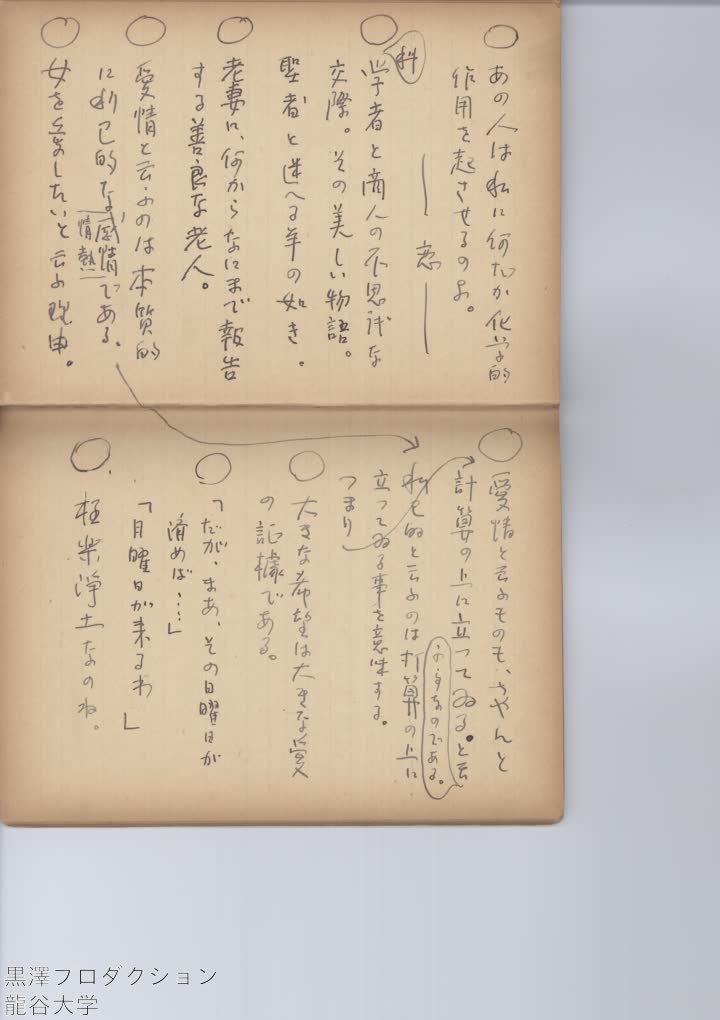 ○あの人は私に何だか化学的
作用を起させるのよ。
── 恋 ──
○科学者と商人の不思議な
交際。その美しい物語。
聖者と迷へる羊の如き。
○老妻に、何からなにまで報告
する善良な老人。
○愛情と云ふのは本質的
に利己的な感情である。
情熱
○女を
したいと云ふ理由。
○愛情と云ふものも、ちやんと
計算の上に立つてゐる。と云
ふ事なのである。
利己的と云ふのは打算の上に
立つてゐる事を意味する。
つまり
○大きな希望は大きな愛
の証據である。
○「だが、まあ、その日曜日が
済めば・・・・」
「月曜日が来るわ」
○極楽浄土なのね。
黒澤プロダクション
龍谷大学